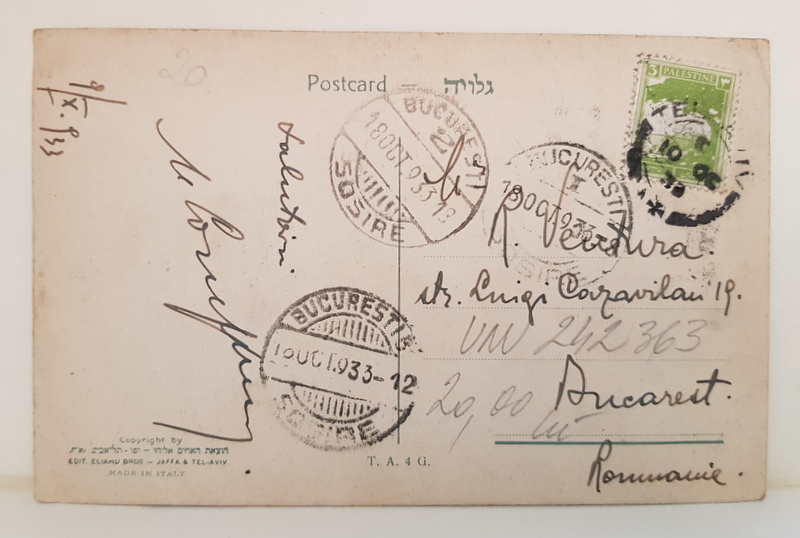 20
Postcard — גלויה
3 PALESTINE ٣
TEL AVIV
10 OC
33
BUCUREȘTI
18 OCT. 933 13
SOSIRE
BUCUREȘTI
I
18 OCT. 933
SOSIRE
BUCUREȘTI
18 OCT. 933-12
SOSIRE
9/X.933
Salutări.
R. Ventura.
str. Luigi Cazavilan 19.
VIN 242 363
20,00 lei
Bucarest.
Roumanie.
Copyright by
הוצאת האחים אליהו - יפו-תל-אביב
EDIT. ELIAHU BROS - JAFFA & TEL-AVIV
MADE IN ITALY
T. A. 4 G.